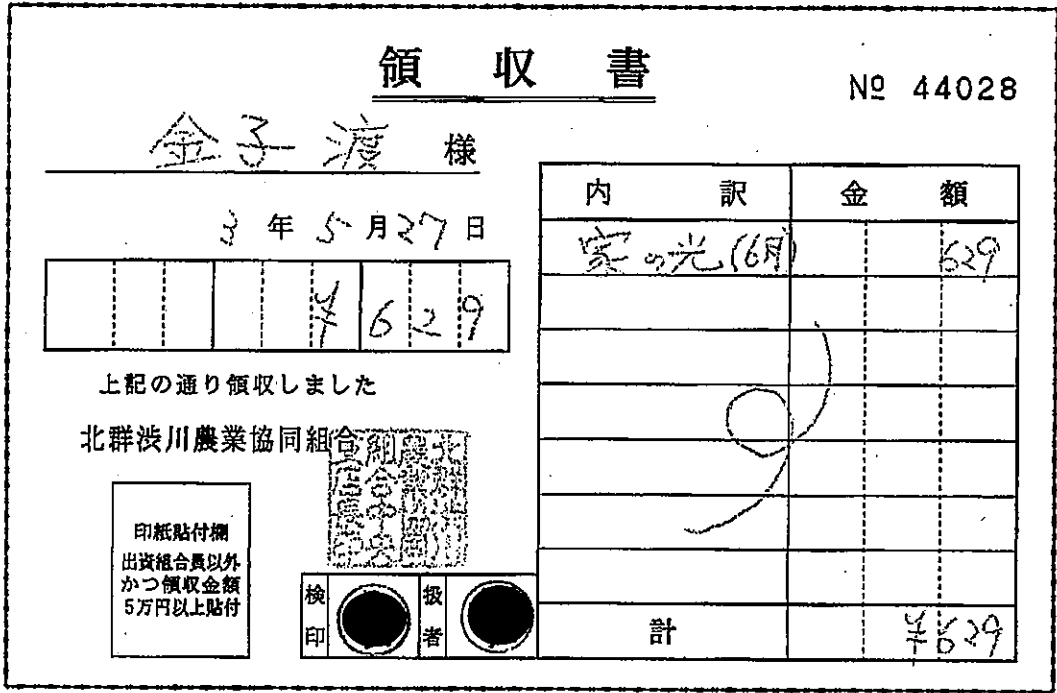 領収書
№ 44028
金子渡 様
3年5月27日
¥629
上記の通り領収しました
北群渋川農業協同組合
印紙貼付欄
出資組合員以外
かつ領収金額
5万円以上貼付
検印
扱者
内訳 金額
家の光(6月) 629
計 ¥629